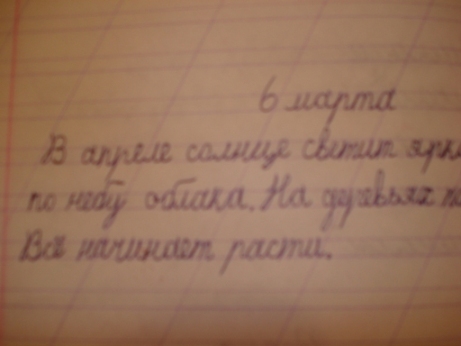 6 марта
В апреле солнце светит
по небу облака. На деревьях
Всё начинает расти.